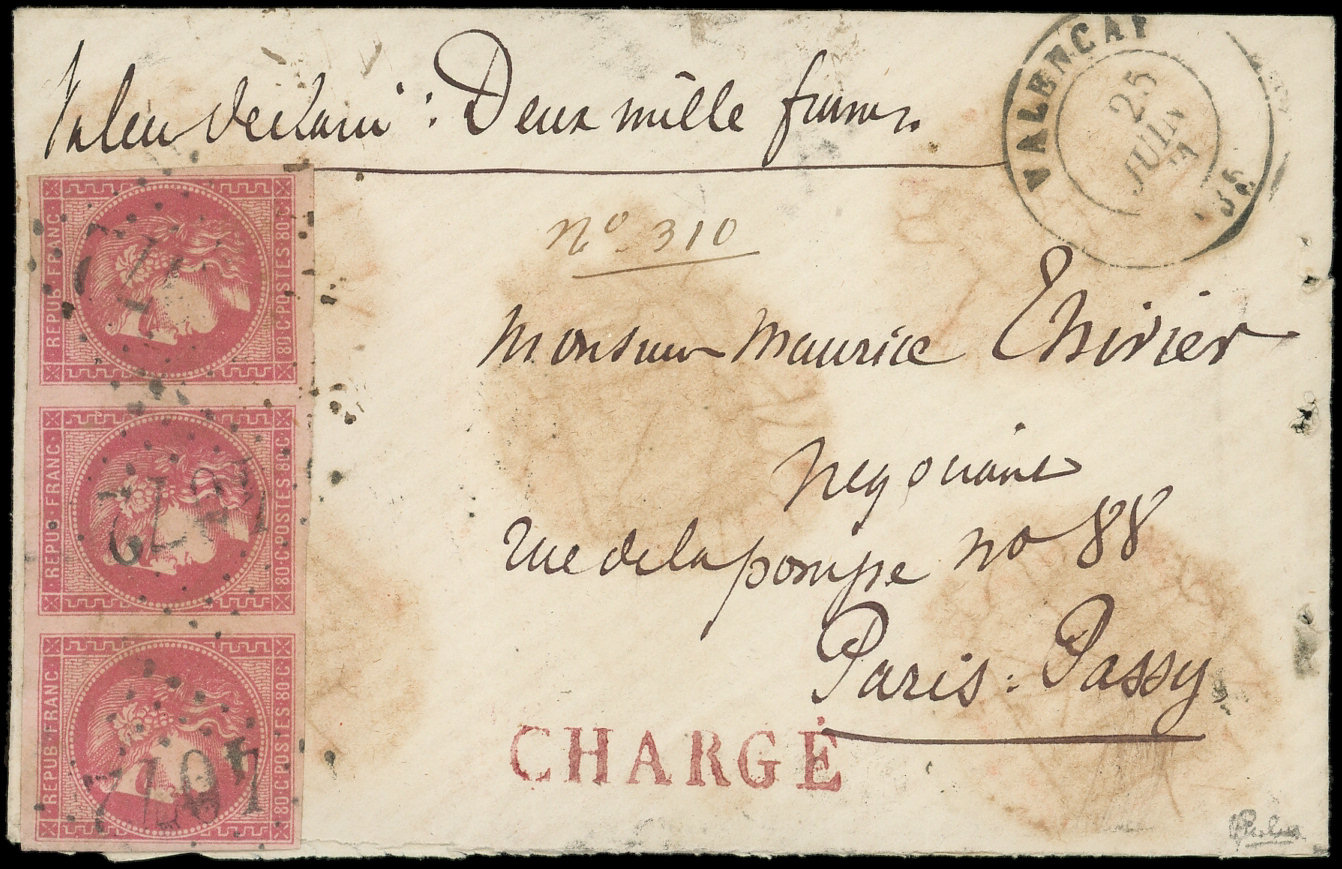 Valeur déclaré : Deux mille francs
VALENCAY
25
JUIN
71
(35)
No. 310
Monsieur Maurice Thirier
Negociant
rue de la pompe no 88
Paris. Passy
CHARGÉ
REPUB·FRANC·
80·C·POSTES·80·C
REPUB·FRANC·
80·C·POSTES·80·C
4172
REPUB·FRANC·
80·C·POSTES·80·C